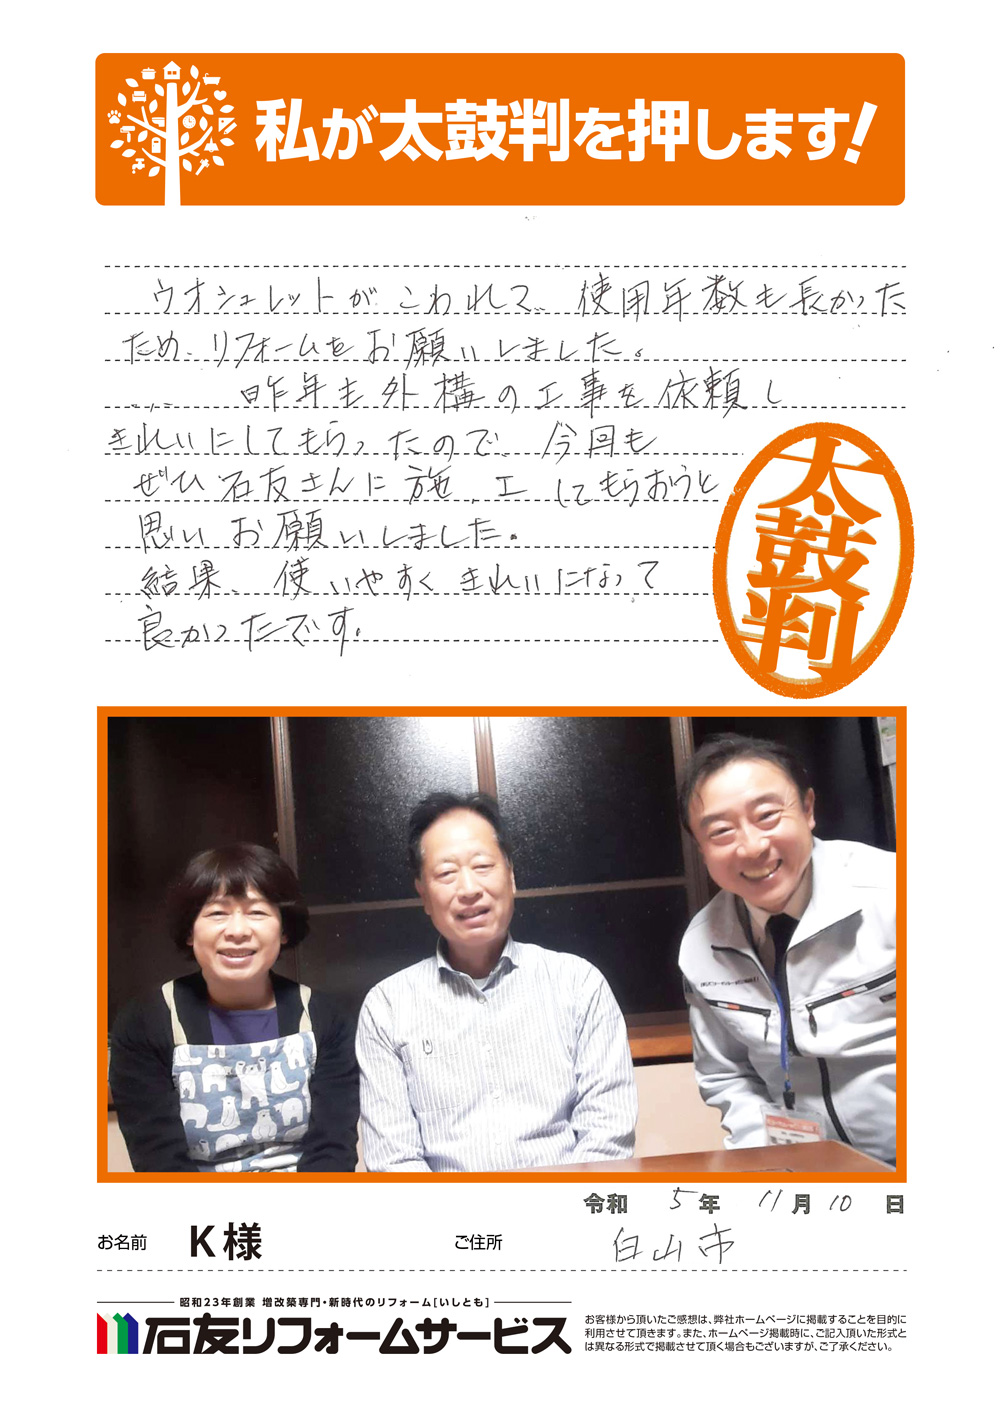 私が太鼓判を押します!
ウオシュレットがこわれて、使用年数も長かった
ため、リフォームをお願いしました。
昨年も外構の工事を依頼し
きれいにしてもらったので、今回も
ぜひ石友さんに施工してもらおうと
思いお願いしました。
結果、使いやすくきれいになって
良かったです。
太鼓判
令和 5年 11月 10日
お名前 K様 ご住所 白山市
昭和23年創業 増改築専門・新時代のリフォーム[いしとも]
石友リフォームサービス
お客様から頂いたご感想は、弊社ホームページに掲載することを目的に
利用させて頂きます。また、ホームページ掲載時に、ご記入頂いた形式と
は異なる形式で掲載させて頂く場合もございますが、ご了承ください。